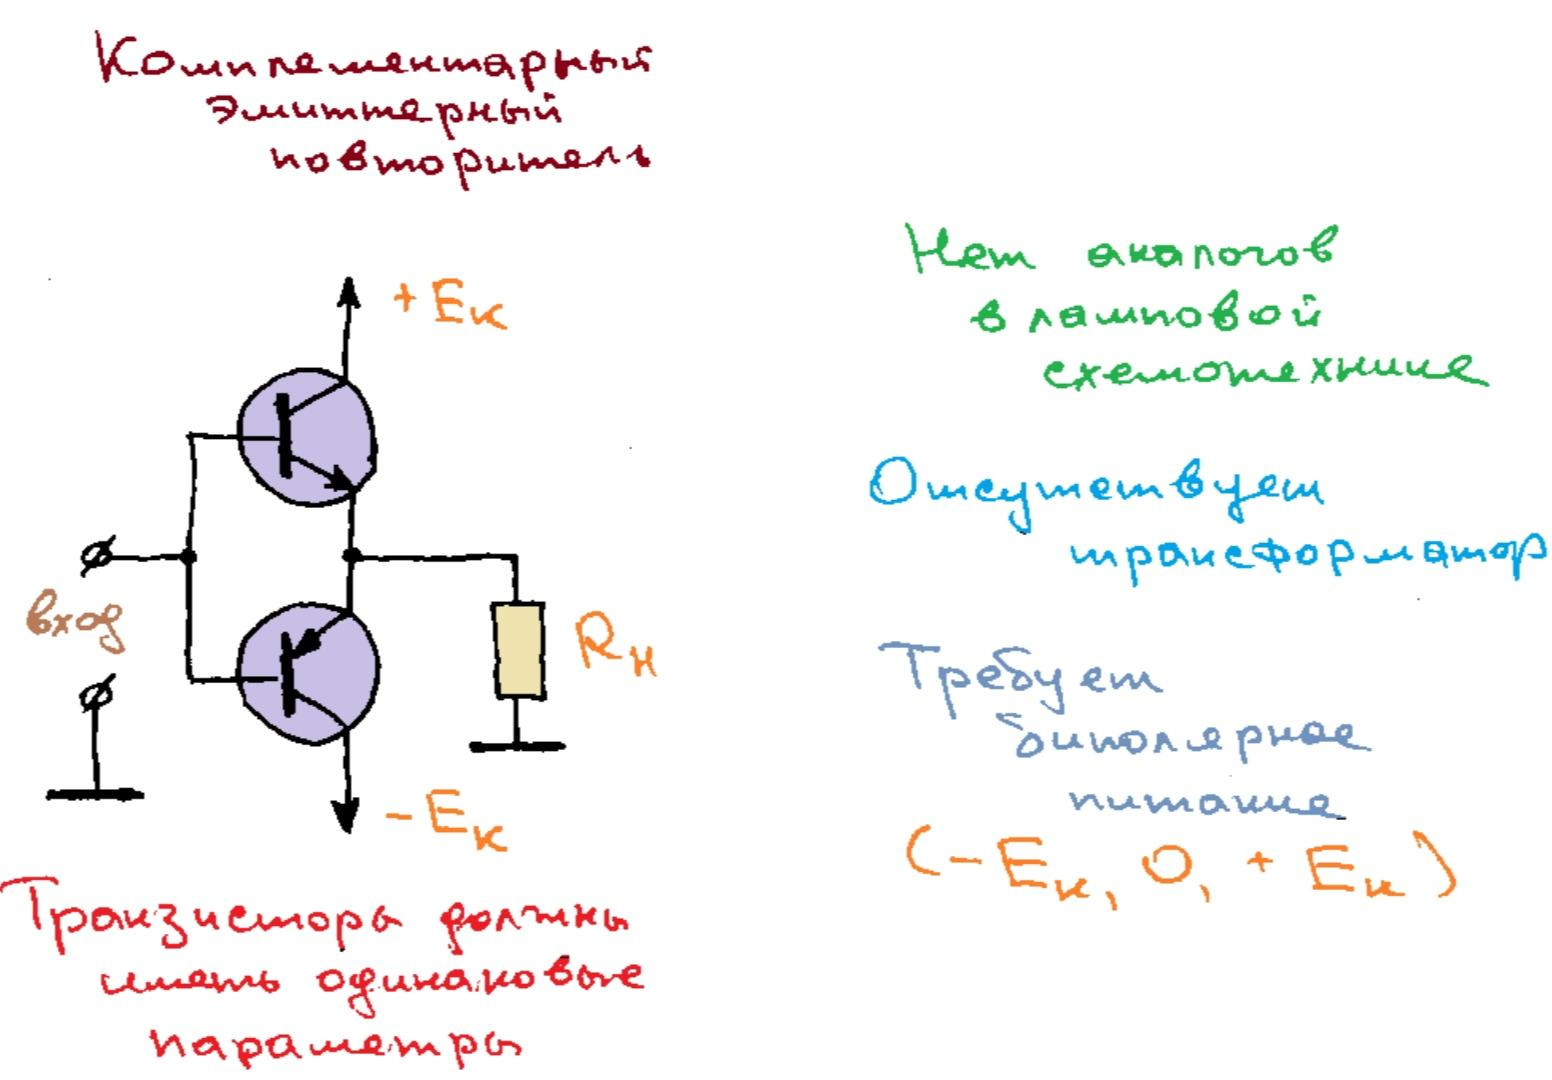 Комплементарный
эмиттерный
повторитель
+ Eк
вход
Rн
- Eк
Транзисторы должны
иметь одинаковые
параметры
Нет аналогов
в ламповой
схемотехнике
Отсутствует
трансформатор
Требует
биполярное
питание
(- Eк, 0, + Eк)